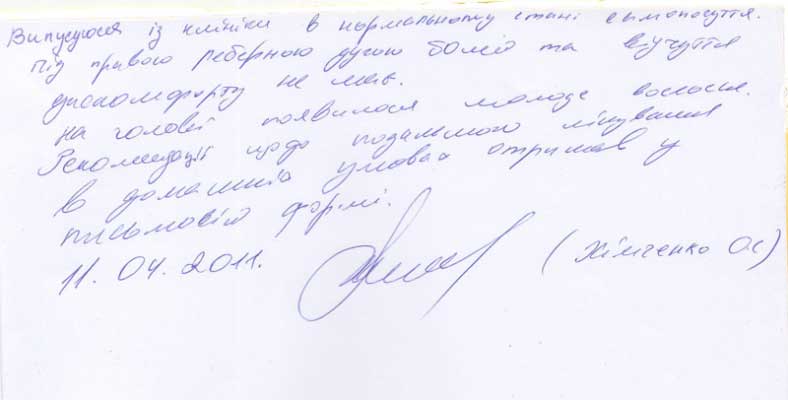 Випусуюся із клініки в нормальному стані самопочуття.
Під правою реберною дугою болів та відчуття
дискомфорту не маю.
На голові появилося молоде волосся.
Рекомендації щодо подальшого лікування
в домашніх умовах отримав у
письмовій формі.
11.04.2011. (Хімченко О.С)